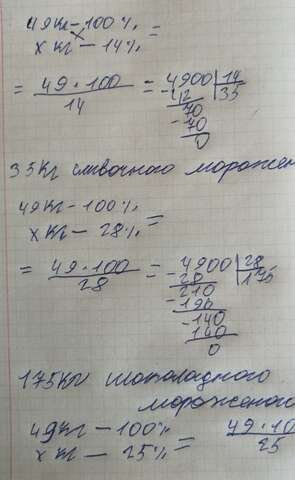 49кг - 100% =
х кг - 14%
= 49 · 100 / 14 = 4900 | 14
- 42 | 35
70
- 70
0
35кг сливочного морожен
49кг - 100% =
х кг - 28%
= 49 · 100 / 28 = 4900 | 28
- 28 | 175
210
- 196
- 140
140
0
175кг шоколадного
мороженого
49кг - 100% = 49 · 10
х кг - 25% 25